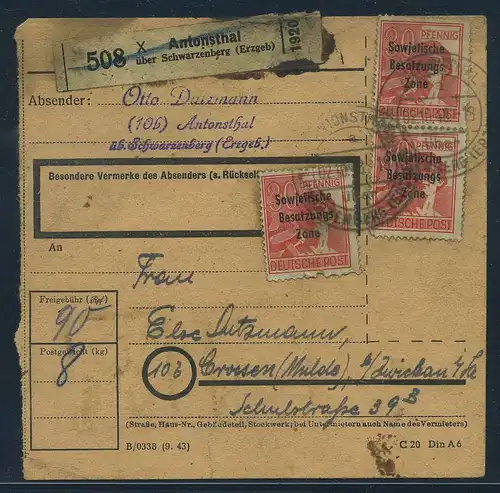 508 x Antonsthal
über Schwarzenberg (Erzgeb)
1920
Absender: Otto
(10b) Antonsthal
üb. Schwarzenberg (Erzgeb.)
Besondere Vermerke des Absenders (s. Rücksei
30 PFENNIG
Sowjetische
Besatzungs
Zone
DEUTSCHE POST
30 PFENNIG
Sowjetische
Besatzungs
Zone
DEUTSCHE POST
30 PFENNIG
Sowjetische
Besatzungs
Zone
DEUTSCHE POST
An
Frau
Else
10b Crossen (Mulde), b/Zwickau i/Sa
Schulstraße 39 B
Freigebühr (Rpf)
90
Postgewicht (kg)
8
(Straße, Haus-Nr., Gebäudeteil, Stockwerk; bei Untermietern auch Name des Vermieters)
B/0338 (9. 43)
C 20 Din A 6